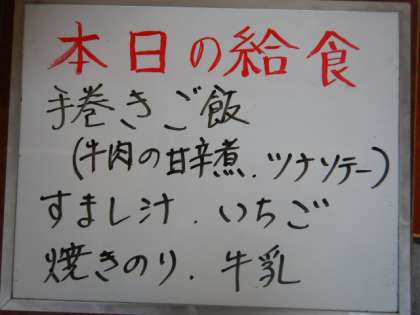 本日の給食
手巻きご飯
(牛肉の甘辛煮.ツナソテー)
すまし汁.いちご
焼きのり.牛乳